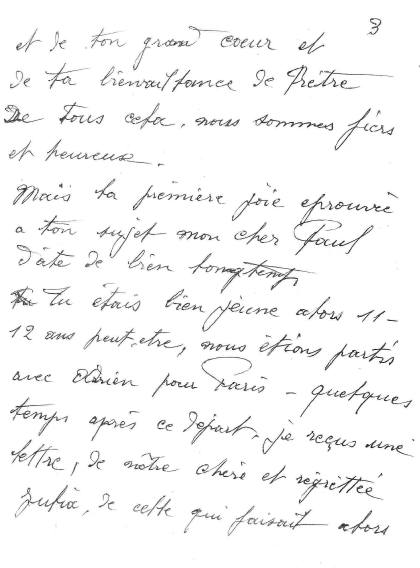 3
et de ton grand coeur et
de ta bienveillance de Prêtre
De tous cela, nous sommes fiers
et heureux.
Mais ta première joie eprouvée
a ton sujet mon cher Paul
date de bien longtemps
tu étais bien jeune alors 11-
12 ans peut-etre, nous étions partis
avec Adrien pour Paris - quelques
temps après ce départ, je reçus une
lettre, de nôtre chère et régrettée
Julia, de celle qui faisait alors